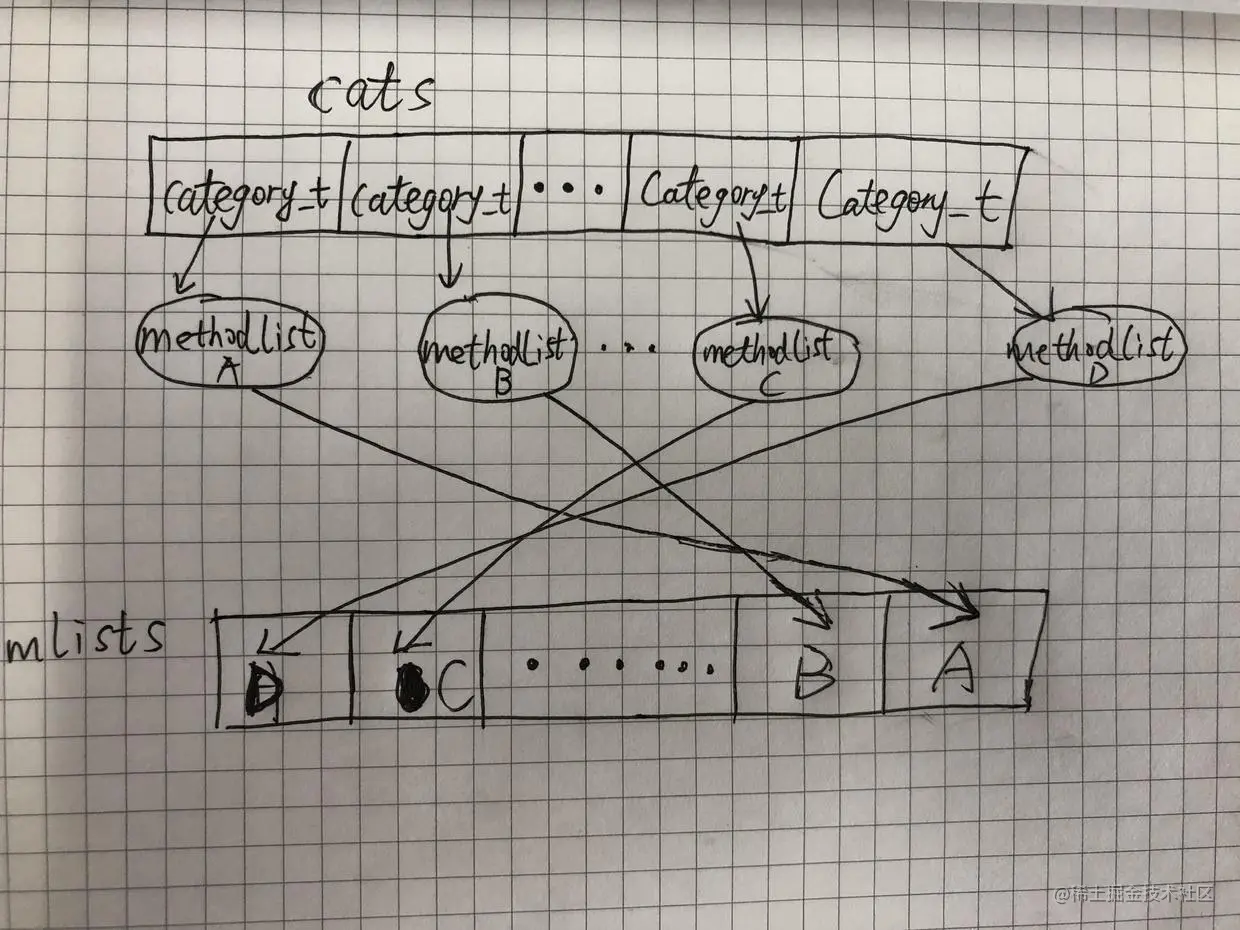 cats
category_t category_t ... Category_t Category_t
methodlist A
methodlist B
...
methodlist C
methodlist D
mlists
D C ...... B A
@稀土掘金技术社区